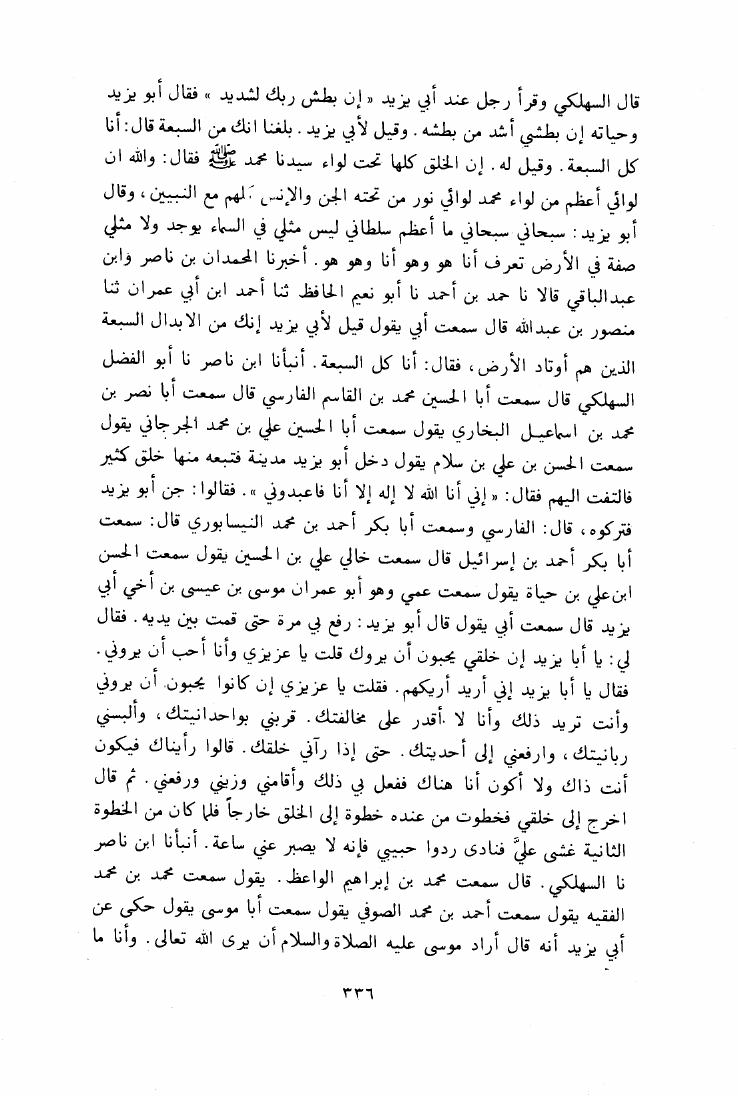 قال السهلكي وقرأ رجل عند أبي يزيد « إن بطش ربك لشديد » فقال أبو يزيد
وحياته إن بطشي أشد من بطشه. وقيل لأبي يزيد. بلغنا انك من السبعة قال: أنا
كل السبعة. وقيل له. إن الخلق كلها تحت لواء سيدنا محمد ﷺ فقال: والله ان
لوائي أعظم من لواء محمد لوائي نور من تحته الجن والإنس كلهم مع النبيين، وقال
أبو يزيد: سبحاني سبحاني ما أعظم سلطاني ليس مثلي في السماء يوجد ولا مثلي
صفة في الأرض تعرف أنا هو وهو أنا وهو هو. أخبرنا المحمدان بن ناصر وابن
عبدالباقي قالا نا حمد بن أحمد نا أبو نعيم الحافظ ثنا أحمد ابن أبي عمران ثنا
منصور بن عبدالله قال سمعت أبي يقول قيل لأبي يزيد إنك من الابدال السبعة
الذين هم أوتاد الأرض، فقال: أنا كل السبعة. أنبأنا ابن ناصر نا أبو الفضل
السهلكي قال سمعت أبا الحسين محمد بن القاسم الفارسي قال سمعت أبا نصر بن
محمد بن اسماعيل البخاري يقول سمعت أبا الحسين علي بن محمد الجرجاني يقول
سمعت الحسن بن علي بن سلام يقول دخل أبو يزيد مدينة فتبعه منها خلق كثير
فالتفت اليهم فقال: « إني أنا الله لا إله إلا أنا فاعبدوني ». فقالوا: جن أبو يزيد
فتركوه، قال: الفارسي وسمعت أبا بكر أحمد بن محمد النيسابوري قال: سمعت
أبا بكر أحمد بن إسرائيل قال سمعت خالي علي بن الحسين يقول سمعت الحسن
ابن علي بن حياة يقول سمعت عمي وهو أبو عمران موسى بن عيسى بن أخي أبي
يزيد قال سمعت أبي يقول قال أبو يزيد: رفع بي مرة حتى قمت بين يديه. فقال
لي: يا أبا يزيد إن خلقي يحبون أن يروك قلت يا عزيزي وأنا أحب أن يروني.
فقال يا أبا يزيد إني أريد أريكهم. فقلت يا عزيزي إن كانوا يحبون أن يروني
وأنت تريد ذلك وأنا لا أقدر على مخالفتك. قربني بواحدانيتك، وألبسني
ربانيتك، وارفعني إلى أحديتك. حتى إذا رآني خلقك. قالوا رأيناك فيكون
أنت ذاك ولا أكون أنا هناك ففعل بي ذلك وأقامني وزيني ورفعني. ثم قال
اخرج إلى خلقي فخطوت من عنده خطوة إلى الخلق خارجاً فلما كان من الخطوة
الثانية غشى عليَّ فنادى ردوا حبيبي فإنه لا يصبر عني ساعة. أنبأنا ابن ناصر
نا السهلكي. قال سمعت محمد بن إبراهيم الواعظ. يقول سمعت محمد بن محمد
الفقيه يقول سمعت أحمد بن محمد الصوفي يقول سمعت أبا موسى يقول حكى عن
أبي يزيد أنه قال أراد موسى عليه الصلاة والسلام أن يرى الله تعالى. وأنا ما
٣٣٦